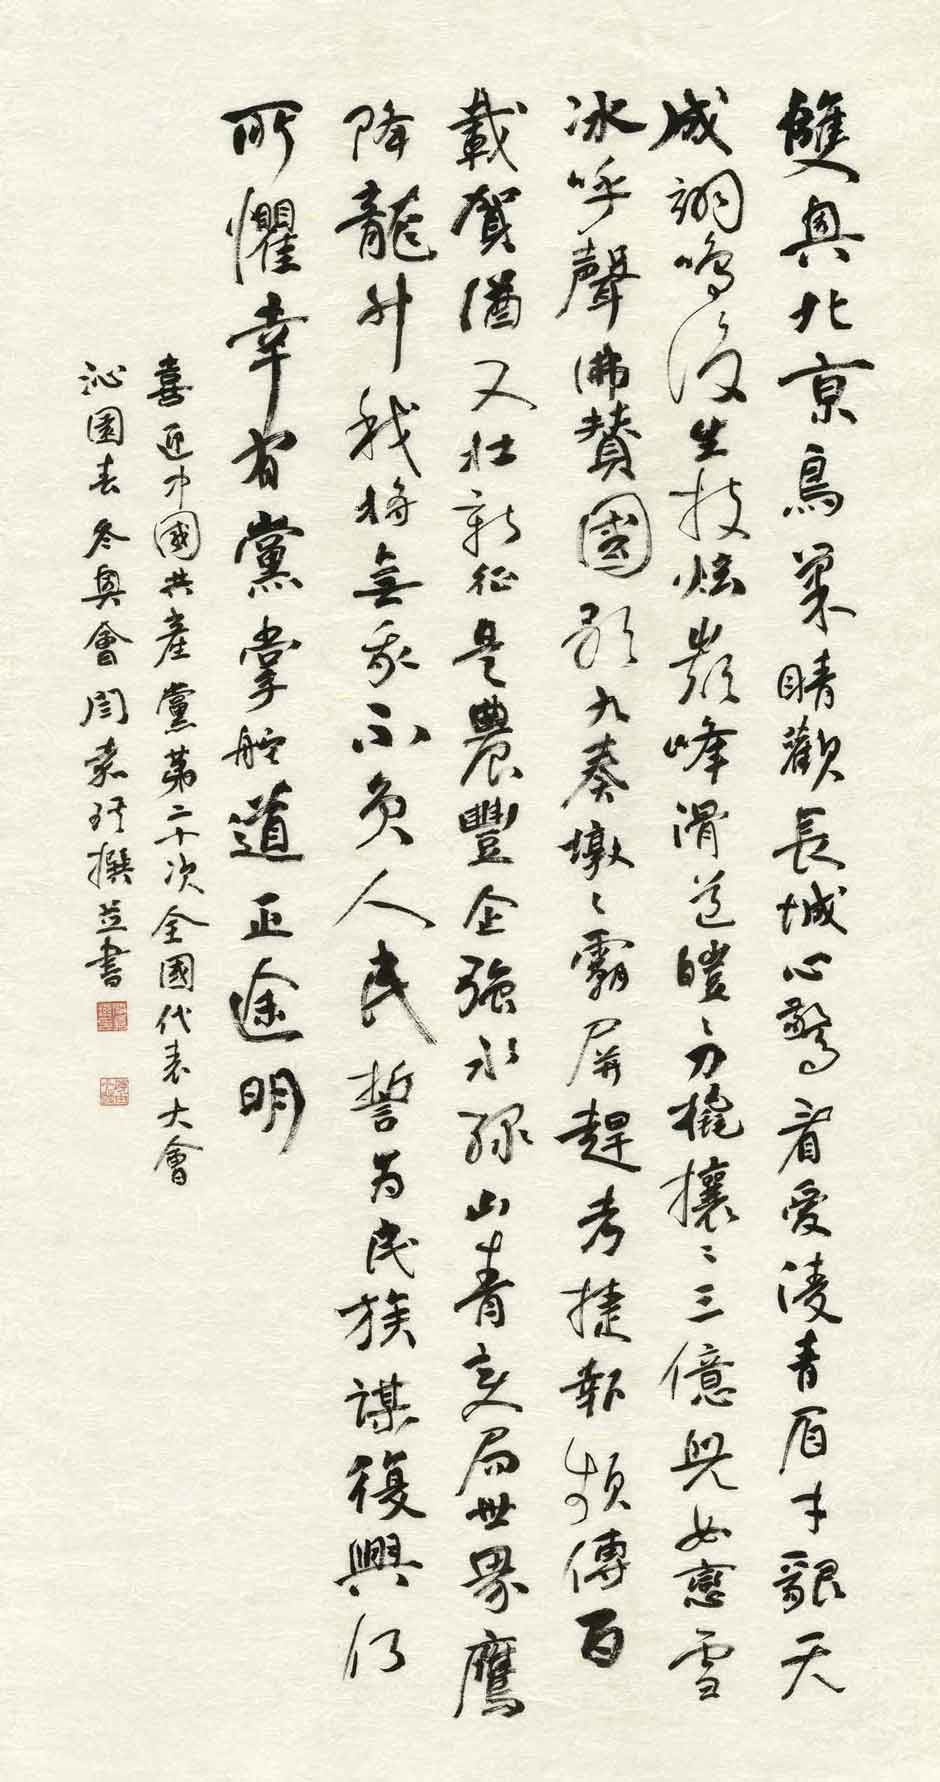 雙奧北京鳥巢晴歡長城心驚看愛凌青眉才貌天
成翊鳴後生技炫巔峰滑道皚〻刀橇攘〻三億兒女戀雪
冰呼聲沸贊國歌九奏墩〻霸屏趕考捷報頻傳百
載賀猶又壯新征是農豐企強水綠山青變局世界鷹
降龍升我將無我不負人民誓為民族謀復興何
所懼幸有黨掌舵道正途明
喜迎中國共產黨第二十次全國代表大會
沁園春冬奧會閆撰並書